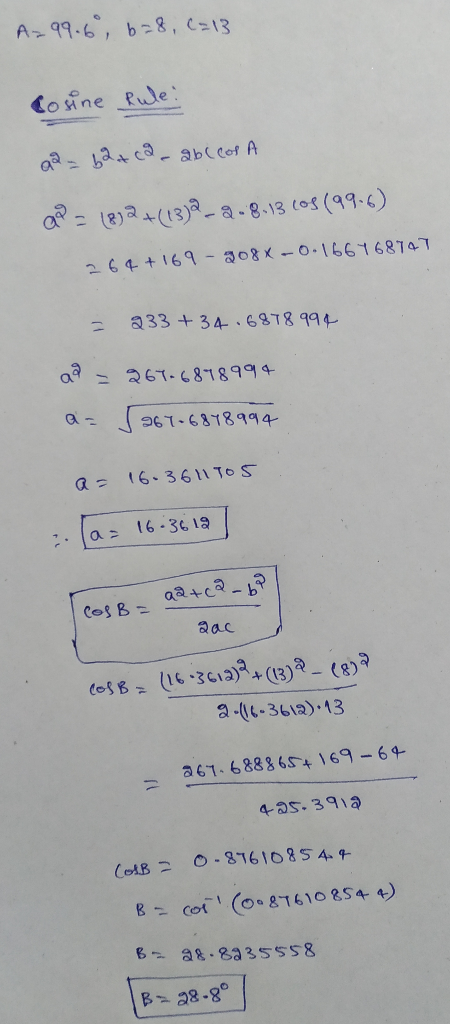 A = 99.6°, b=8, c=13
Cosine Rule:
a² = b²+c² - 2bc cos A
a² = (8)²+(13)² - 2·8·13 cos(99.6)
= 64 + 169 - 208 x - 0.166768747
= 233 + 34.6878994
a² = 267.6878994
a = √267.6878994
a = 16.3611705
∴ a = 16.3612
cos B = a²+c²-b² / 2ac
cos B = (16.3612)²+(13)²-(8)² / 2·(16.3612)·13
= 267.688865+169-64 / 425.3912
cos B = 0.876108544
B = cos⁻¹ (0.876108544)
B = 28.8235558
B = 28.8°